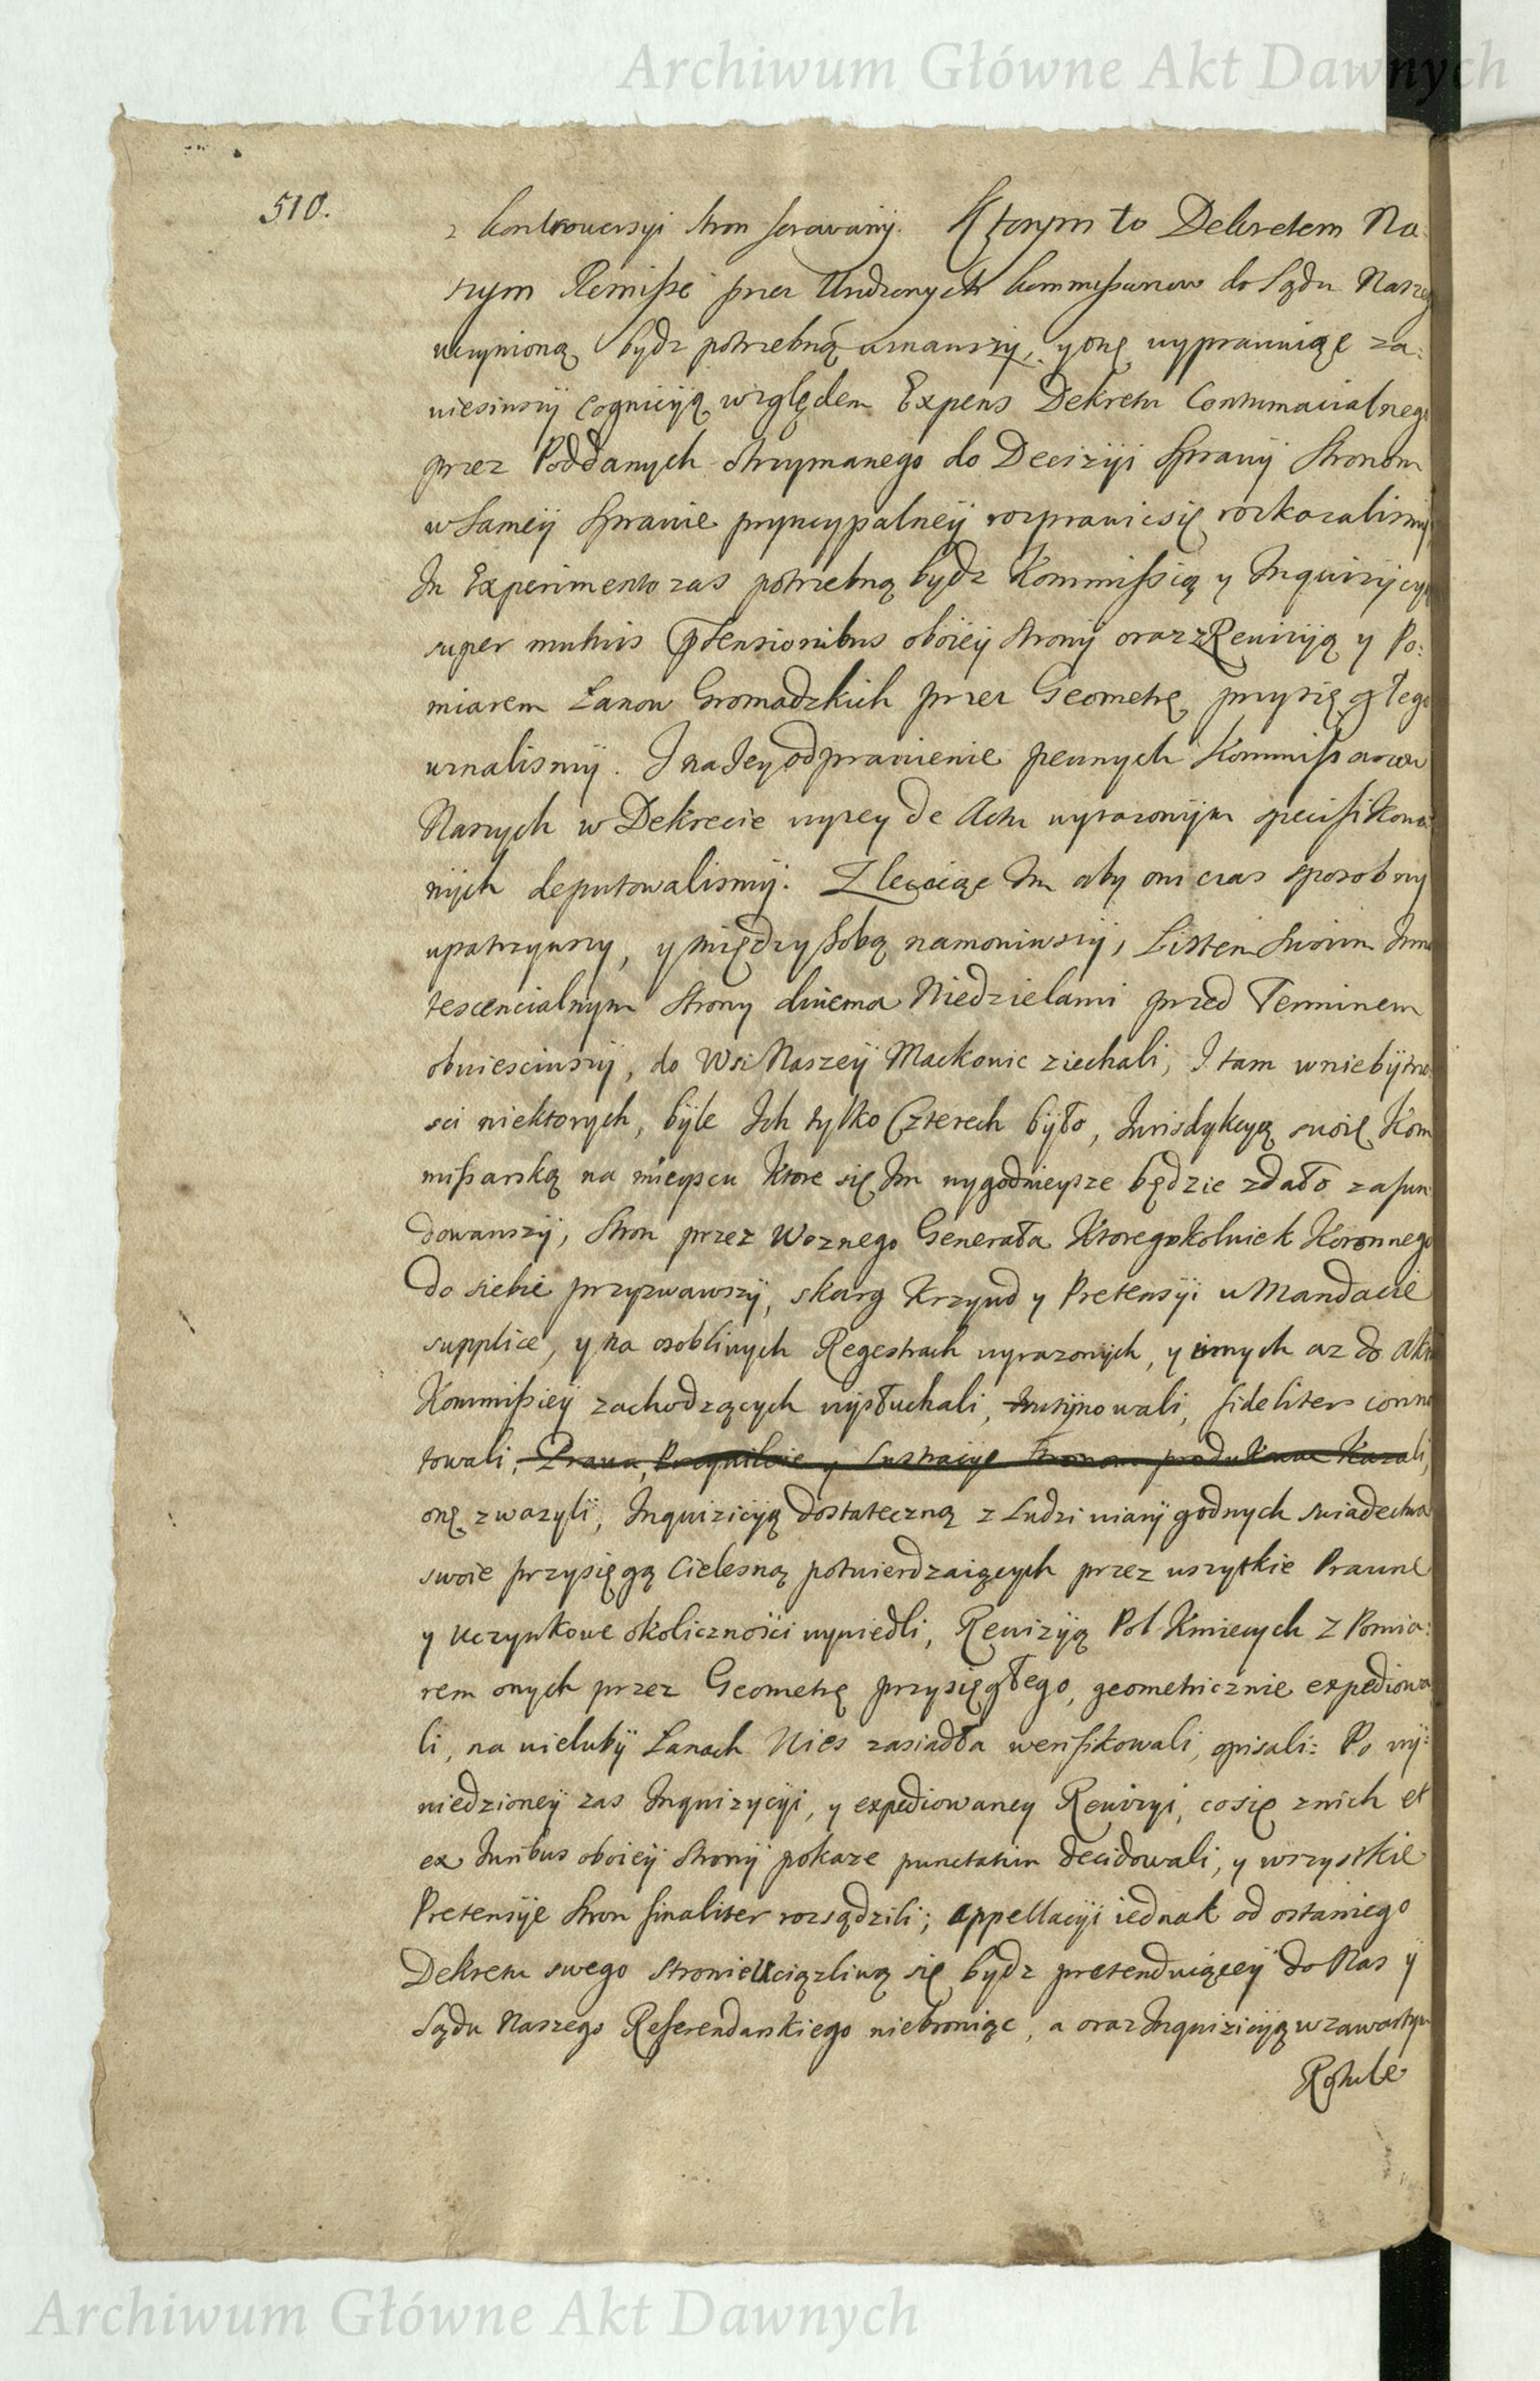 Archiwum Główne Akt Dawnych
510.
z kontrowersyi stron ferowany. Ktorym to Dekretem Na:
szym Remissę przez Urodzonych Kommissarzow do Sądu Naszeg
uczynioną bydz potrzebną uznawszy, y onę wyprawuiąc za:
niesiony Cognicyą względem Expens Dekretu Contumacialnego
przez Poddanych otrzymanego do Decizyi Sprawy Stronom
w Samey Sprawie pryncypalney rozprawic się roskazalismy
In Experimento zas potrzebną bydz Kommissią y Inquizycyą
super mutuis prætensionibus oboiey strony oraz z Rewizyią y Po:
miarem Łanow Gromadzkich przez Geometrę przysięgłego
uznalismy. I na Jey odprawienie pewnych Kommissarzow
Naszych w Dekrecie wyzey de Actu wyrazonym specifikowa
nych deputowalismy. Zlecaiąc Im aby oni czas sposobny
upatrzywszy, y między sobą namowiwszy, Listem Swoim Inno
tescencialnym Strony dwiema Niedzielami przed Terminem
obwiesciwszy, do Wsi Naszey Mackowic ziechali, I tam w niebytno
sci niektorych, byle Ich tylko Czterech było, Jurisdykcyą swoię Kom
missarską na mieyscu ktore się Im wygodnieysze będzie zdało zafun
dowawszy, Stron przez Woznego Generała Ktoregokolwiek Koronnego
do siebie przyzwawszy, skarg Krzywd y Pretensyi w Mandacie
supplice, y na osobliwych Regestrach wyrazonych, y innych az do Aktu
Kommissiey zachodzących wysłuchali, fideliter conno
towali, Prawa, Przywileie y Lustracye Stronom produkowac Kazali,
onę zwazyli, Inquizicyą dostateczną z Ludzi wiary godnych swiadectwa
swoie przysięgą Cielesną potwierdzaiących przez wszytkie Prawne
y uczynkowe okolicznosci wywiedli, Rewizyą Pol Kmiecych z Pomia:
rem onych przez Geometrę przysięgłego, geometricznie expediowa
li, na wieluby Łanach Wies zasiadła werifikowali, opisali: Po wy:
wiedzioney zas Inquizycyi, y expediowaney Rewizyi, co się z nich et
ex Juribus oboiey Strony pokaze punctatim decidowali, y wszystkie
Pretensye Stron finaliter rozsądzili; appellacyi iednak od ostaniego
Dekretu swego Stronie uciązliwą się bydz pretenduiącey do Nas y
Sądu Naszego Referendarskiego niebroniąc, a oraz Inquizicyą w zawartym
Rotule
Archiwum Główne Akt Dawnych